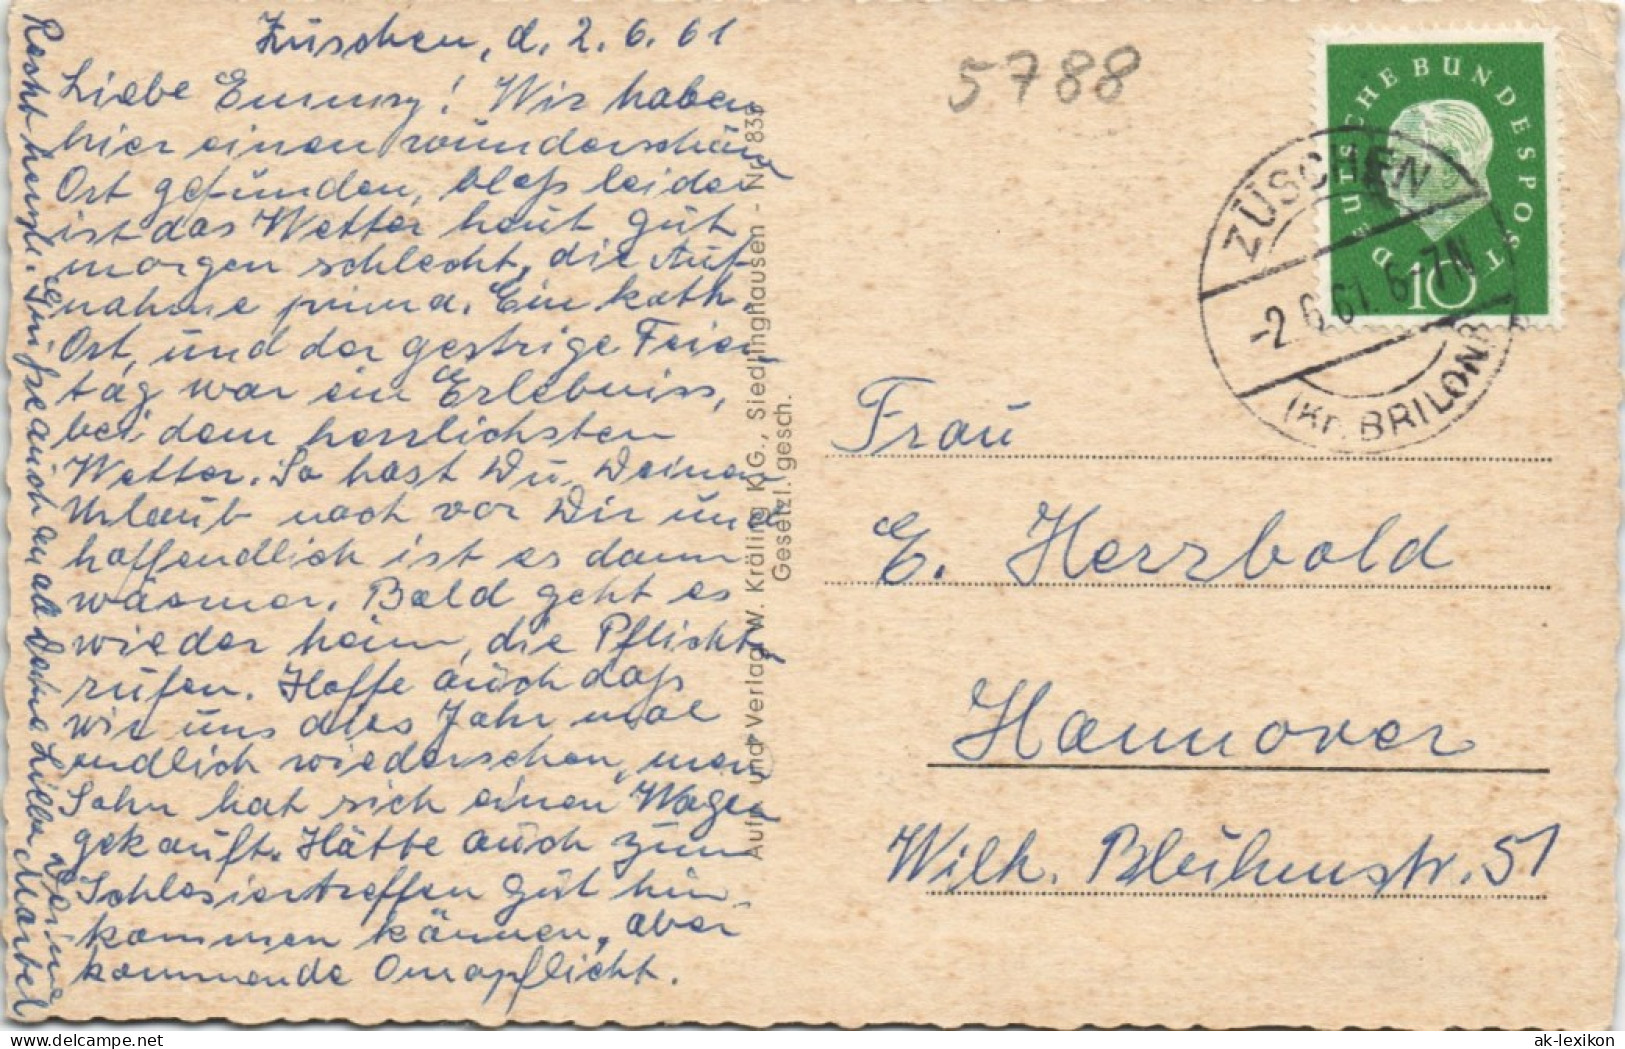 Züschen, d. 2.6.61
Liebe Emmy! Wir haben
hier einen wunderschönen
Ort gefunden, bloß leider
ist das Wetter heut gut
morgen schlecht, die Auf-
nahme prima. Ein kath.
Ort, und der gestrige Feier-
tag war ein Erlebniss,
bei dem herrlichsten
Wetter. So hast Du Deinen
Urlaub noch vor Dir und
hoffendlich ist es dann
wärmer. Bald geht es
wieder heim, die Pflichten
rufen. Hoffe auch daß
wir uns dies Jahr mal
endlich wiedersehen, mein
Sohn hat sich einen Wagen
gekauft. Hätte auch zum
Schlesiertreffen gut hin-
kommen können, aber
kommende Omapflicht.
Recht herzl. Grüße auch an all Deine Lieben
Deine
Marbel
Aufn. und Verlag W. Kräling K.G., Siedlinghausen - Nr. 839
Gesetzl. gesch.
5788
DEUTSCHE BUNDESPOST
10
ZÜSCHEN
-2.6.61. 6-7N
(Kr. BRILON)
Frau
E. Herrbold
Hannover
Wilh. Bleuhmstr. 51
ak-lexikon
© ak-lexikon.de